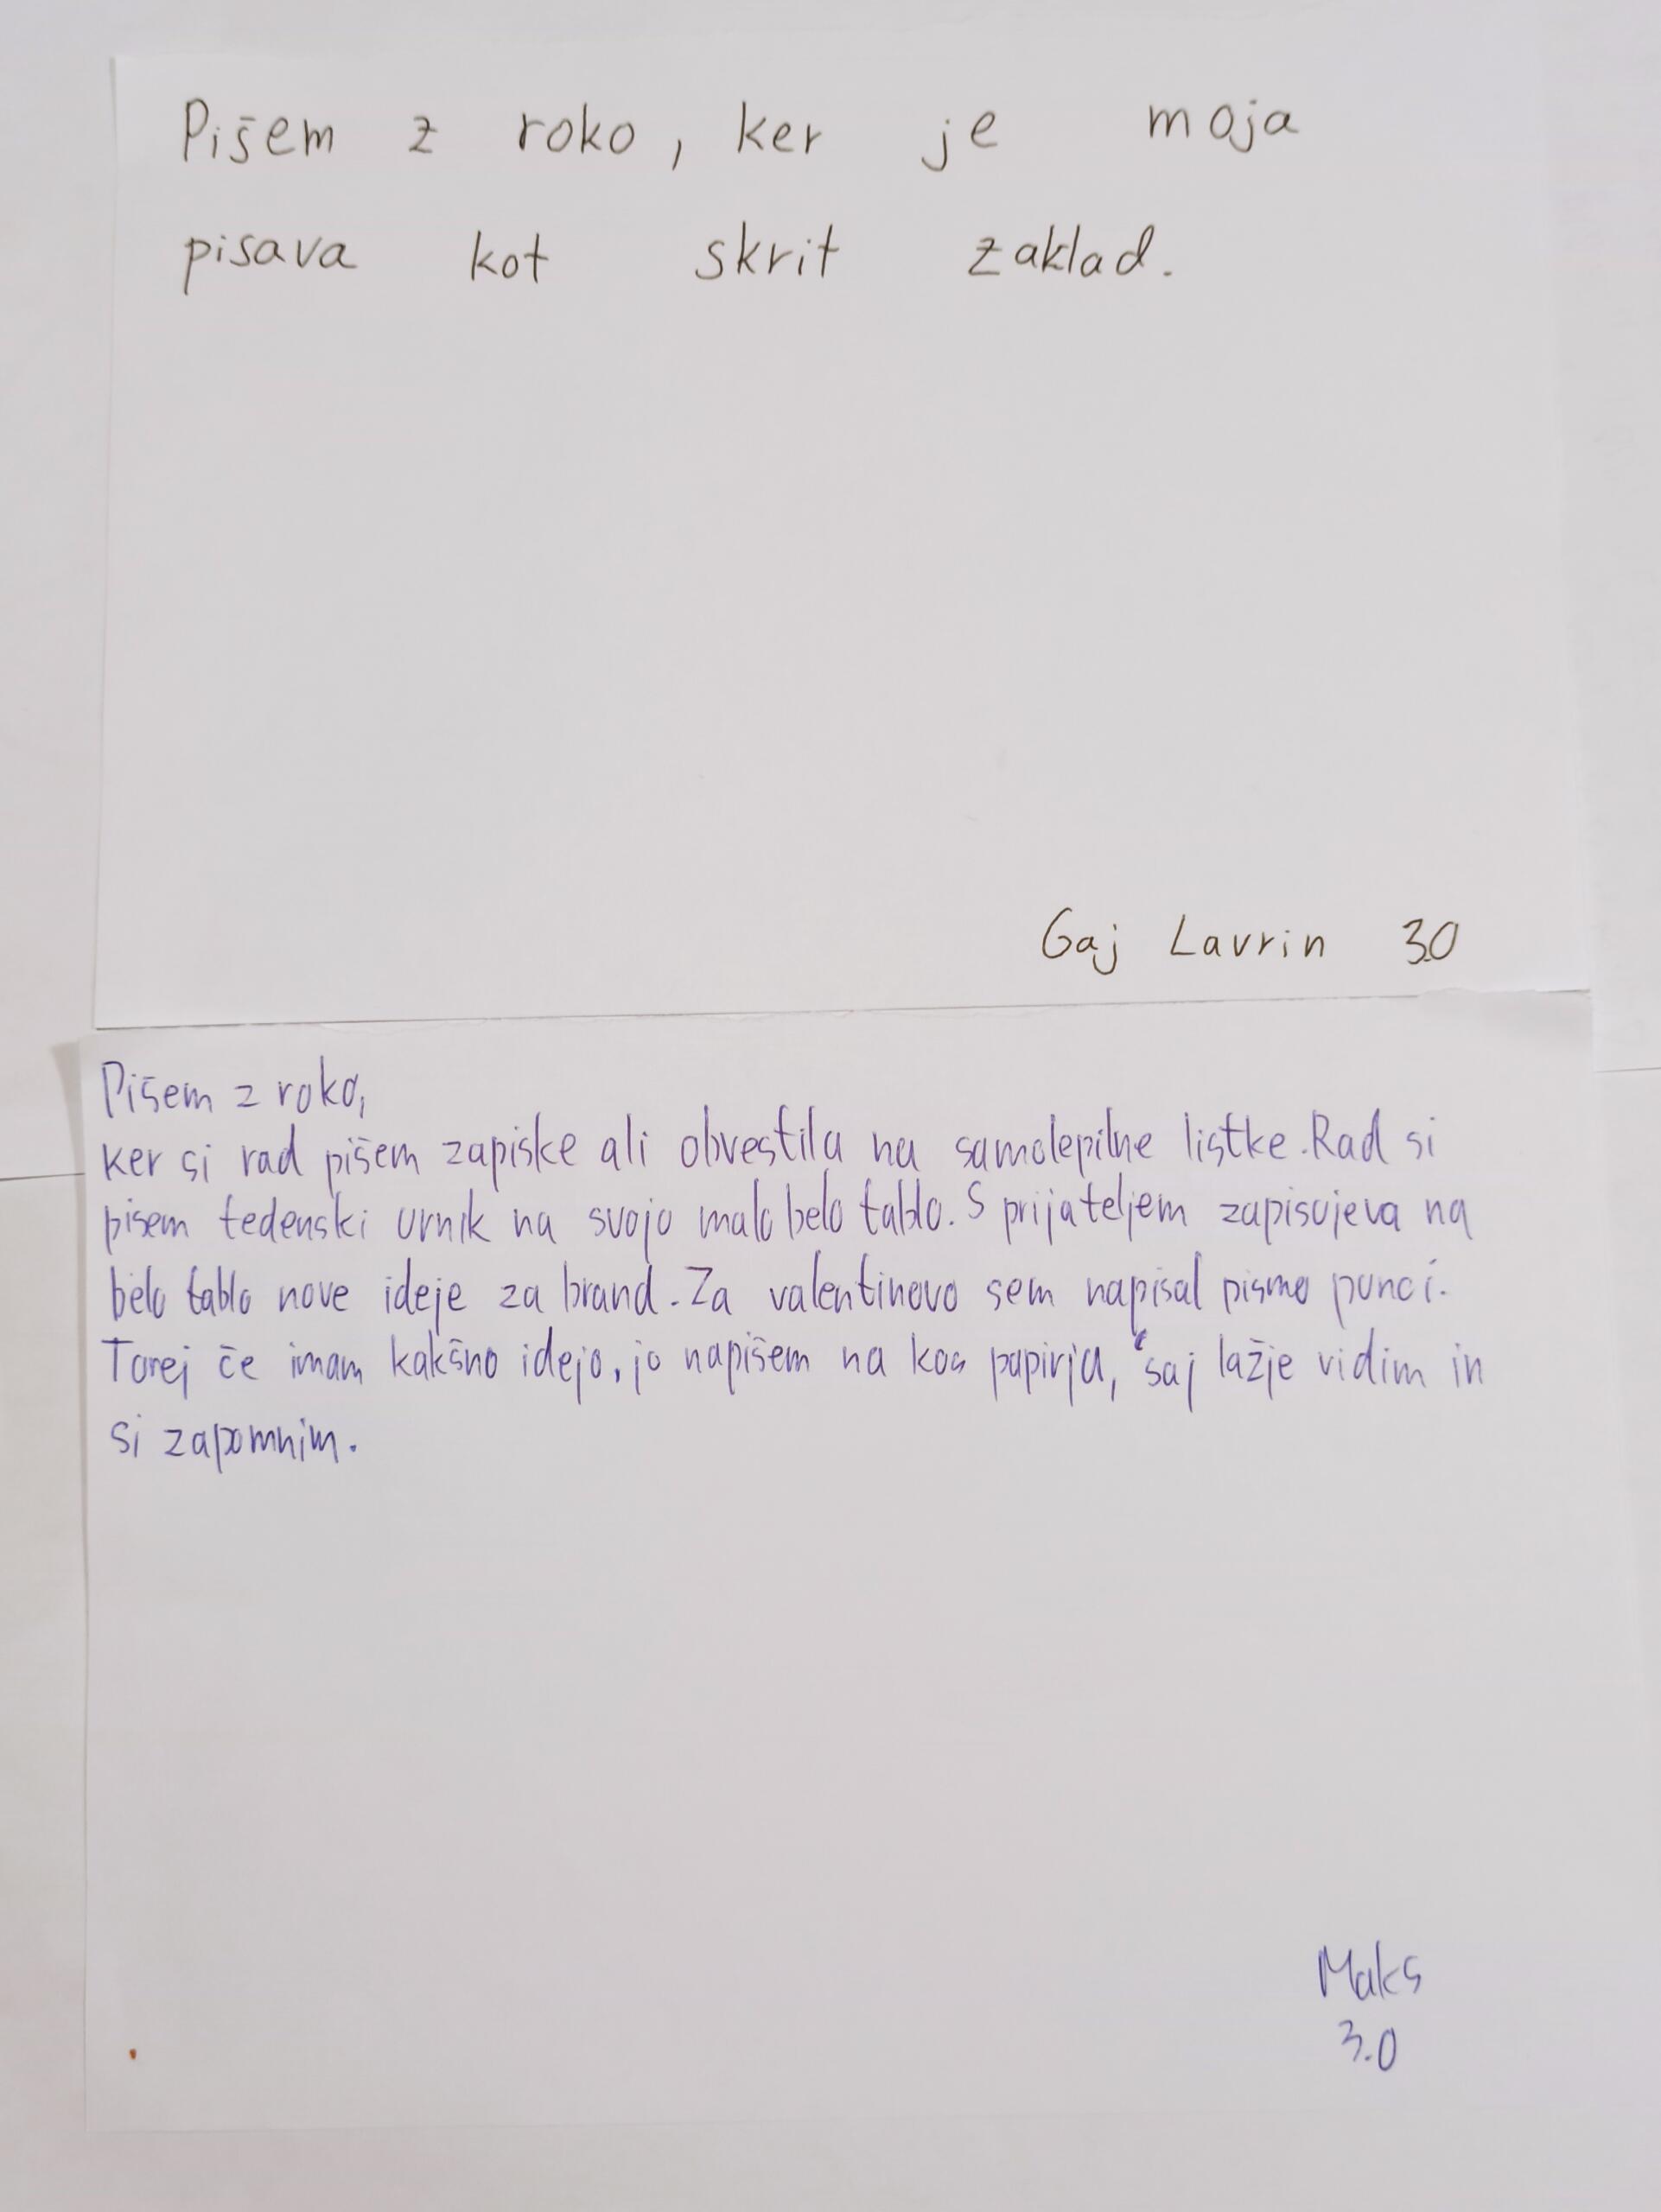 Pišem z roko, ker je moja
pisava kot skrit zaklad.
Gaj Lavrin 3.O
Pišem z roko,
ker si rad pišem zapiske ali obvestila na samolepilne listke. Rad si
pisem tedenski urnik na svojo malo belo tablo. S prijateljem zapisujeva na
belo tablo nove ideje za brand. Za valentinovo sem napisal pismo punci.
Torej če imam kakšno idejo, jo napišem na kos papirja, saj lažje vidim in
si zapomnim.
Maks
3.O